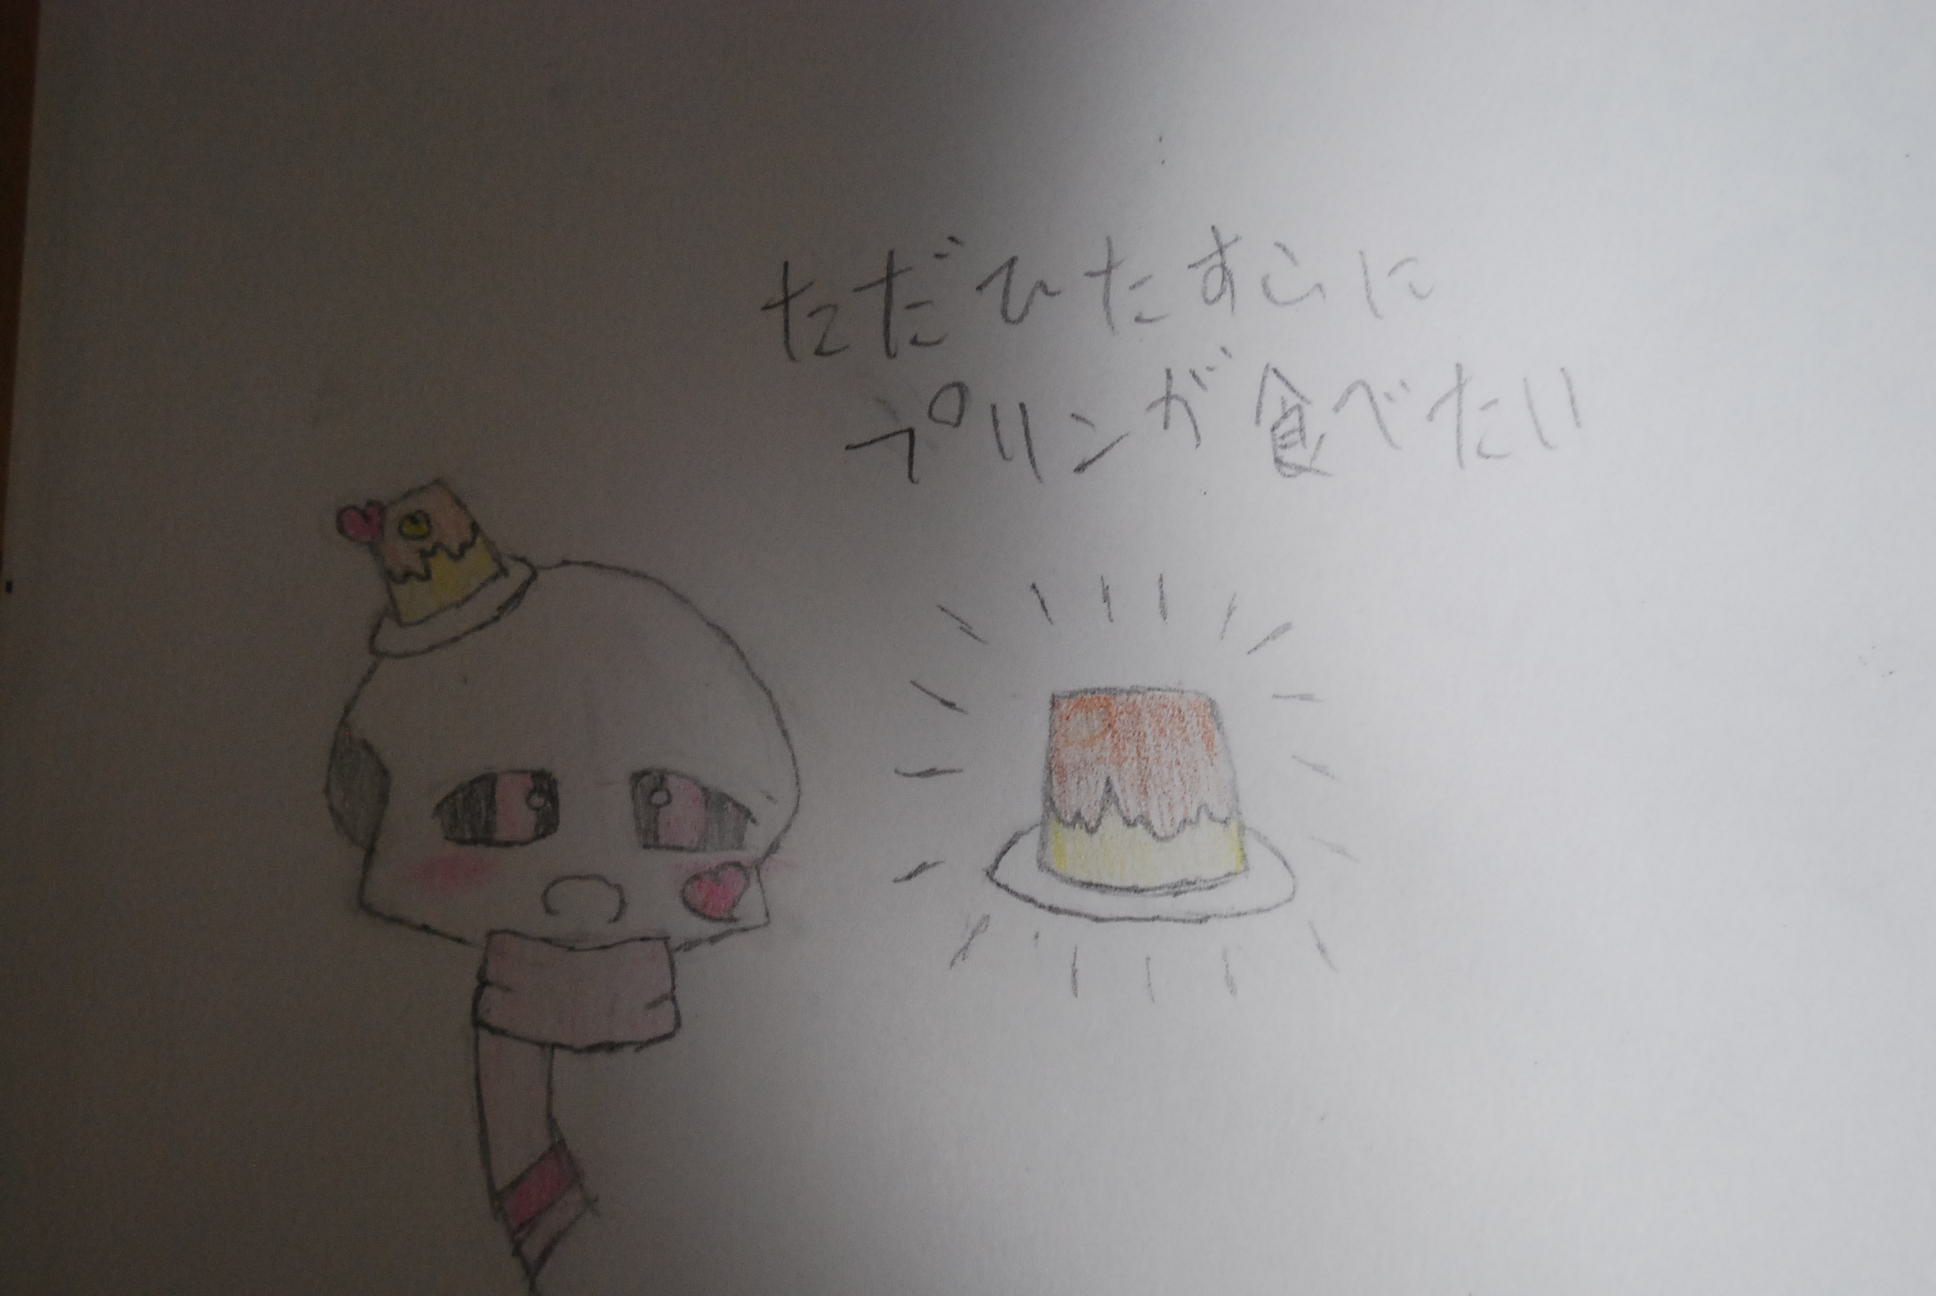 ただひたすらに
プリンが食べたい